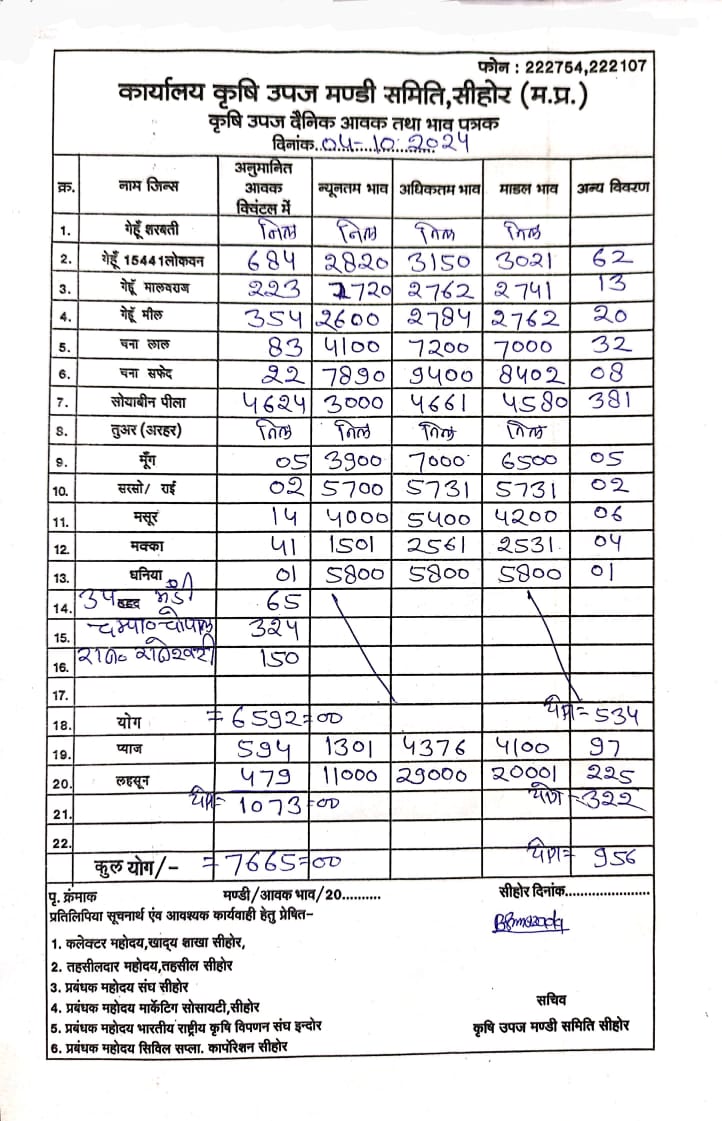 फोन : 222754,222107
कार्यालय कृषि उपज मण्डी समिति,सीहोर (म.प्र.)
कृषि उपज दैनिक आवक तथा भाव पत्रक
दिनांक..04-10.2024
क्र. नाम जिन्स अनुमानित आवक क्विंटल में न्यूनतम भाव अधिकतम भाव माडल भाव अन्य विवरण
1. गेहूँ शरबती निल निल निल निल
2. गेहूँ 15441लोकवन 684 2820 3150 3021 62
3. गेहूँ मालवराज 223 2720 2762 2741 13
4. गेहूँ मील 354 2600 2784 2762 20
5. चना लाल 83 4100 7200 7000 32
6. चना सफेद 22 7890 9400 8402 08
7. सोयाबीन पीला 4624 3000 4661 4580 381
8. तुअर (अरहर) निल निल निल निल
9. मूँग 05 3900 7000 6500 05
10. सरसो/ राई 02 5700 5731 5731 02
11. मसूर 14 4000 5400 4200 06
12. मक्का 41 1501 2561 2531 04
13. धनिया 01 5800 5800 5800 01
14. उप मंडी 65
15. चम्पा० चौपाल 324
16. 150
17.
18. योग =6592=00 योग=534
19. प्याज 594 1301 4376 4100 97
20. लहसून 479 11000 29000 20001 225
21. योग= 1073=00 योग=322
22.
कुल योग/- =7665=00 योग= 956
पृ. क्रंमाक मण्डी/आवक भाव/20.......... सीहोर दिनांक......................
प्रतिलिपिया सूचनार्थ एंव आवश्यक कार्यवाही हेतु प्रेषित-
1. कलेक्टर महोदय,खाद्य शाखा सीहोर,
2. तहसीलदार महोदय,तहसील सीहोर
3. प्रबंधक महोदय संघ सीहोर
4. प्रबंधक महोदय मार्केटिग सोसायटी,सीहोर
सचिव
5. प्रबंधक महोदय भारतीय राष्ट्रीय कृषि विपणन संघ इन्दोर
कृषि उपज मण्डी समिति सीहोर
6. प्रबंधक महोदय सिविल सप्ला. कार्पोरेशन सीहोर